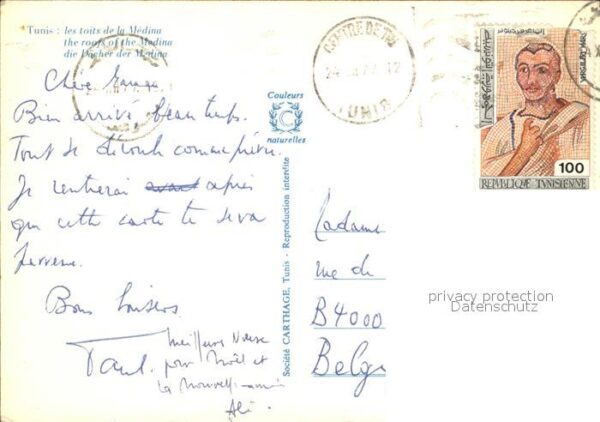 Tunis : les toits de la Médina
the roofs of the Medina
die Dächer der Medina
Chère
Bien arrivé, beau temps.
Tout se déroule comme prévu.
Je rentrerai avant après
que cette carte te sera
parvenue.
Bons baisers
Paul.
Meilleurs Vœux
pour Noël et
la nouvelle année
Ali.
Couleurs
C
naturelles
Société CARTHAGE, Tunis - Reproduction interdite
CENTRE DE TRI
TUNIS
100
REPUBLIQUE TUNISIENNE
Madame
rue de
B4000
Belgi
privacy protection
Datenschutz